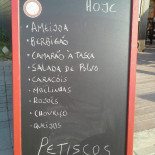 HOJE
• AMEIJOA
• BERBIGÃO
• CAMARÃO À TASCA
• SALADA DE POLVO
• CARACÓIS
• MOELINHAS
• ROJÕES
• CHOURIÇO
• QUEIJOS
PETISCOS